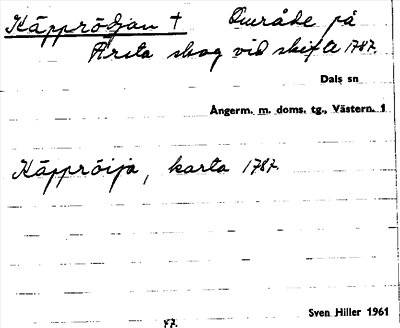 Käpprödjan † Område på
Årsta skog vid skifte 1787.
Dals sn
Ångerm. m. doms. tg., Västern. 1
Käppröija, karta 1787.
Sven Hiller 1961